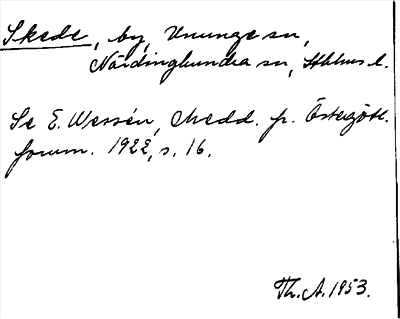 Skede, by, Ununge sn,
Närdinghundra sn, Sthlms l.
Se E. Wessén, Medd. fr. Östergötl.
fornm. 1922, s. 16.
Th. A. 1953.